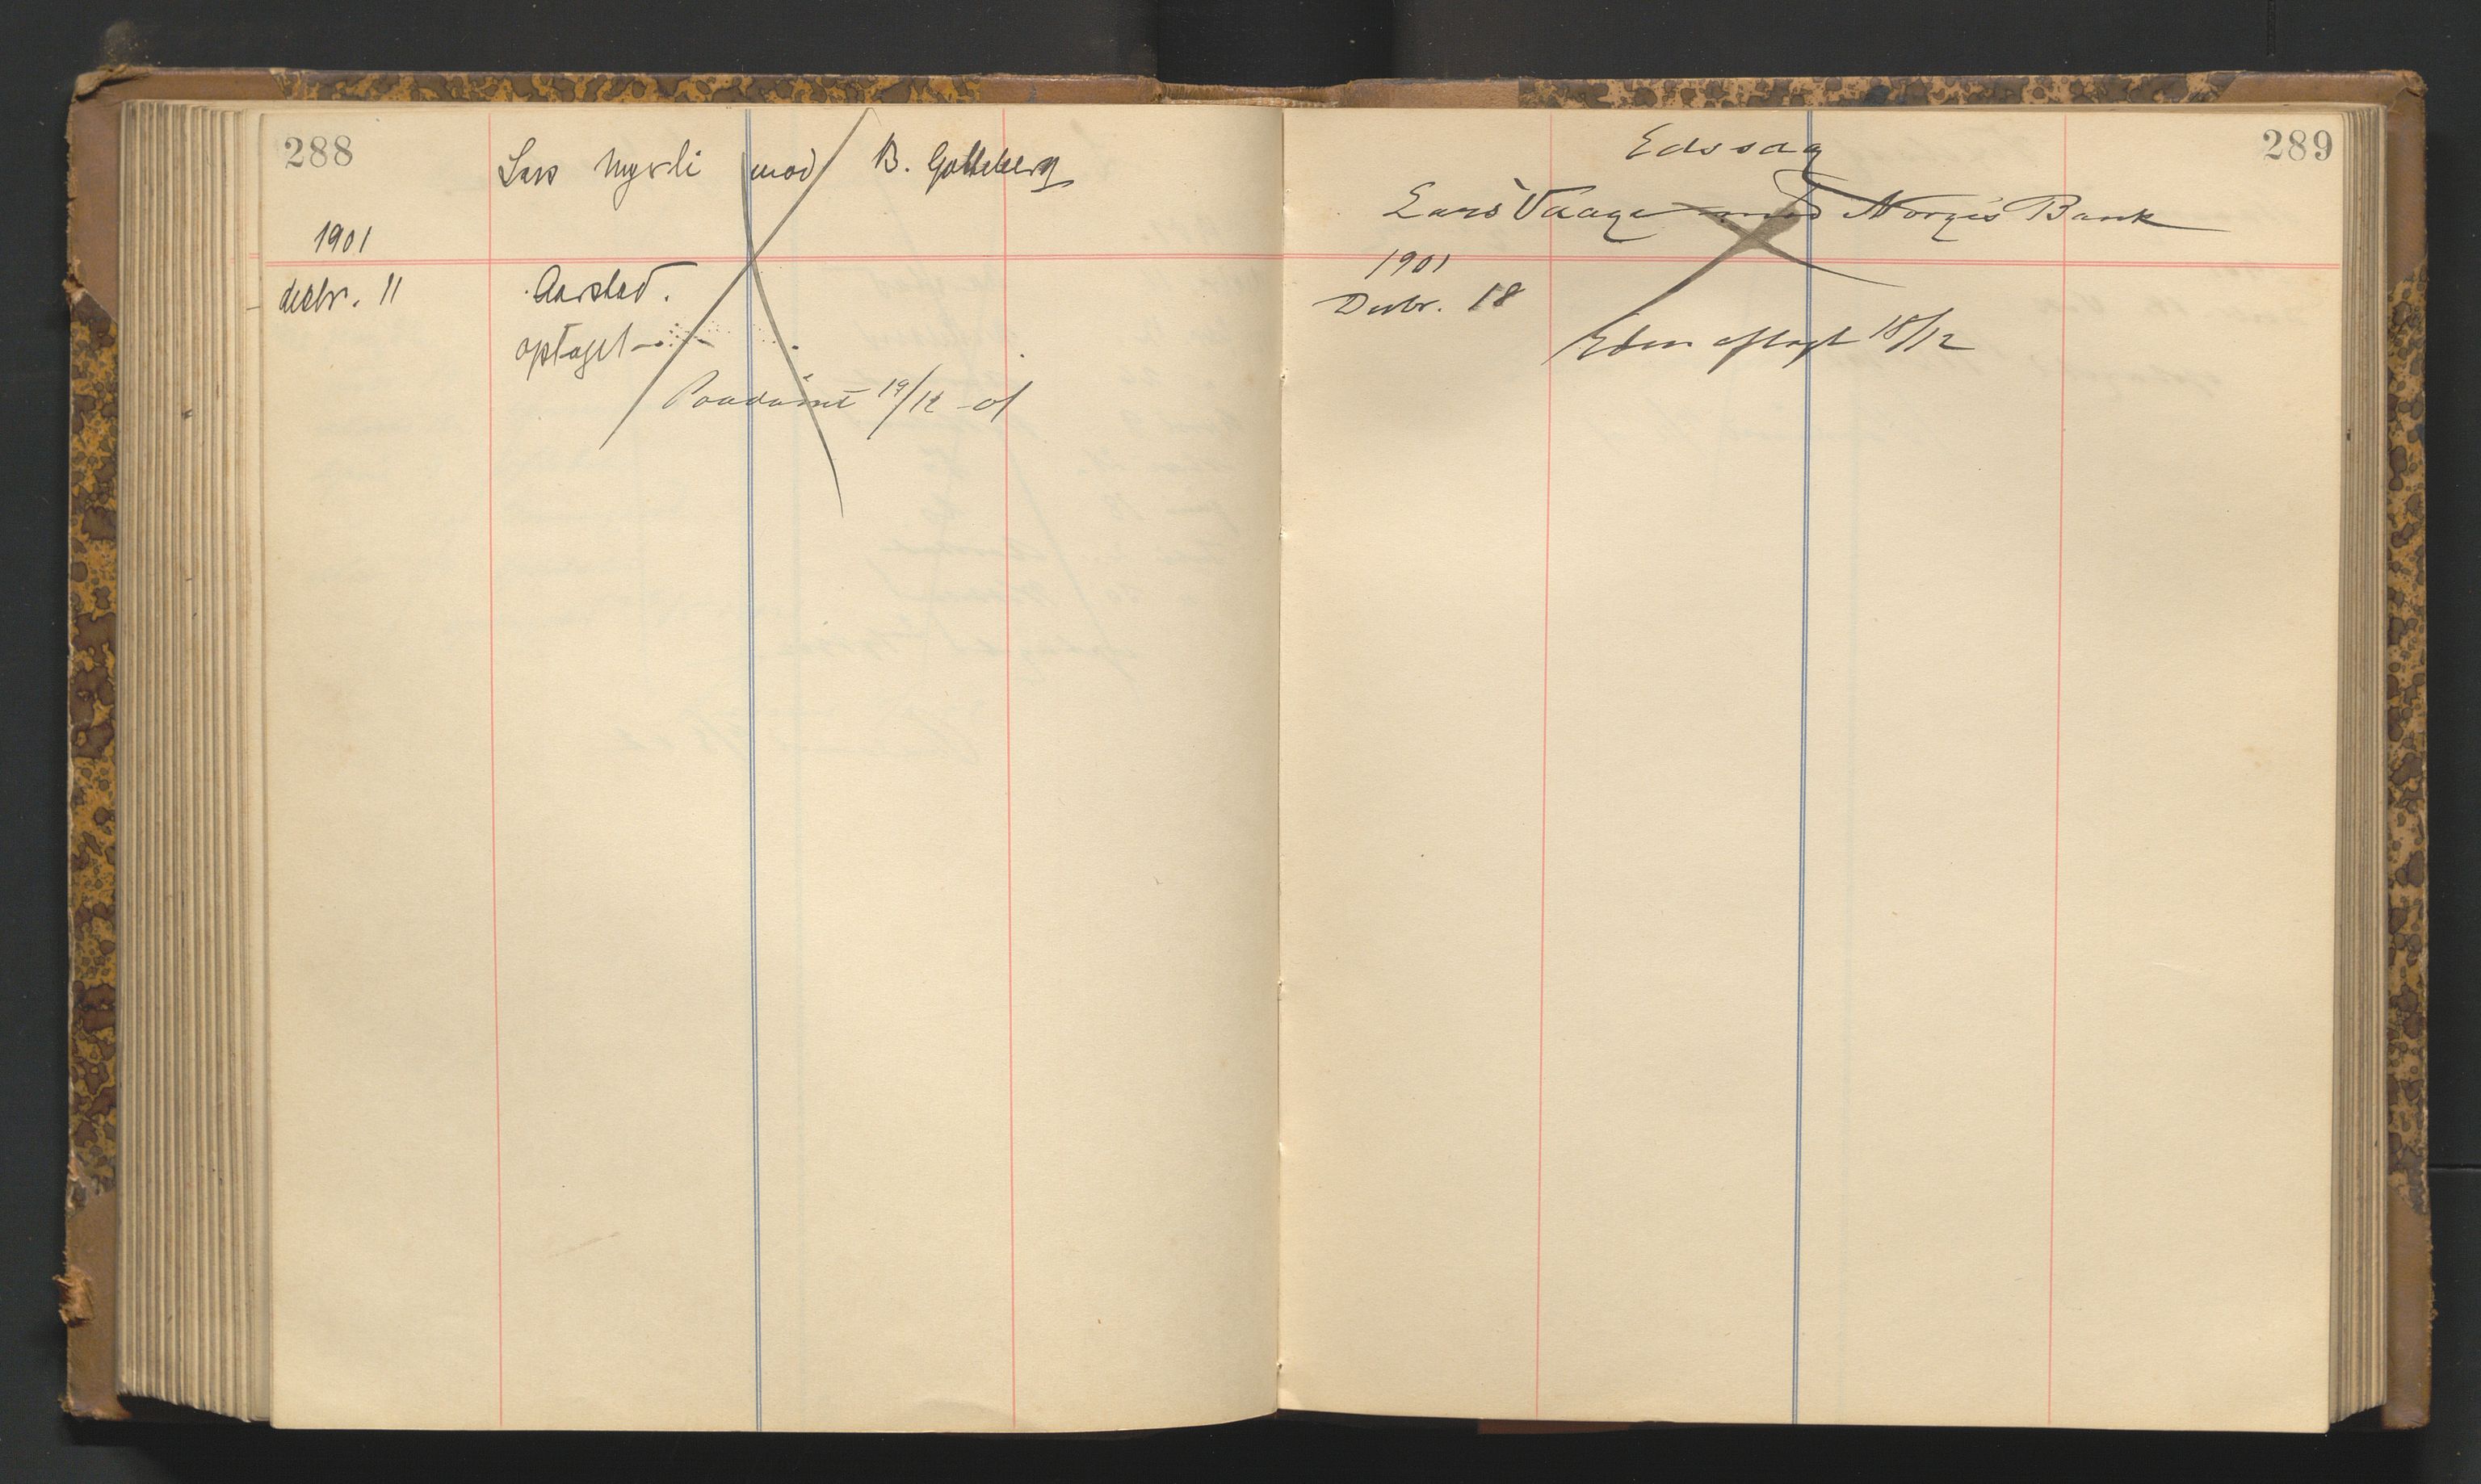 288
Lars Myrli mod B. Gotteberg
1901
decbr. 11 Aarstad.
optaget
Paadømt 19/12 01
289
Edssag
Lars Vaage mod Norges Bank
1901
Decbr. 18
Eden aflagt 18/12